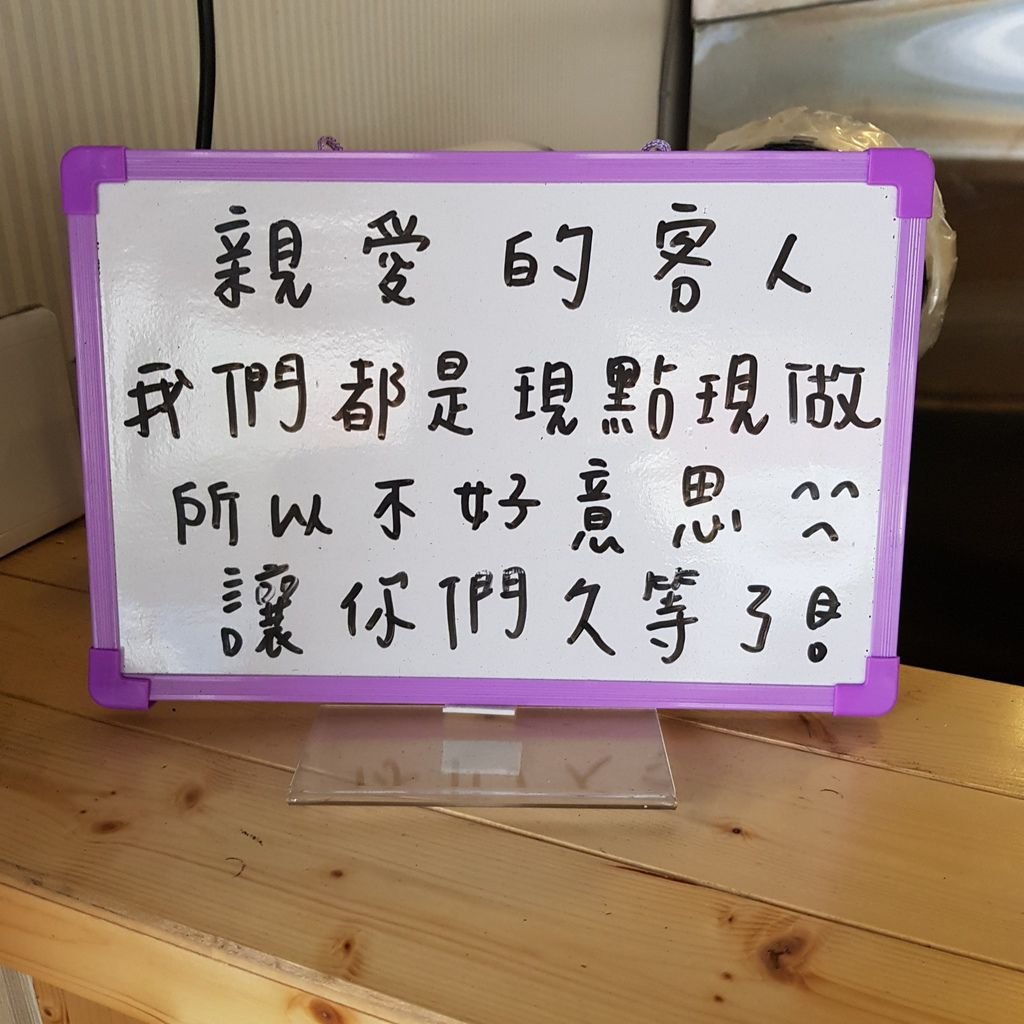 親愛的客人
我們都是現點現做
所以不好意思 ^^
讓你們久等了!